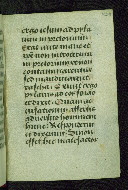 ergo iesum ad pyla
tum in pretorium.
Erat autē mane et
ipsi non introierunt
in pretorium ut non
contaminarentur
sed manducarent
pascha. Exiuit ergo
pylatus ad eos foras
et dixit. Quam ac
cusationem affertis
aduersus hominem
hunc. Responderunt
et dixerunt. Si non
esset hic malefactor